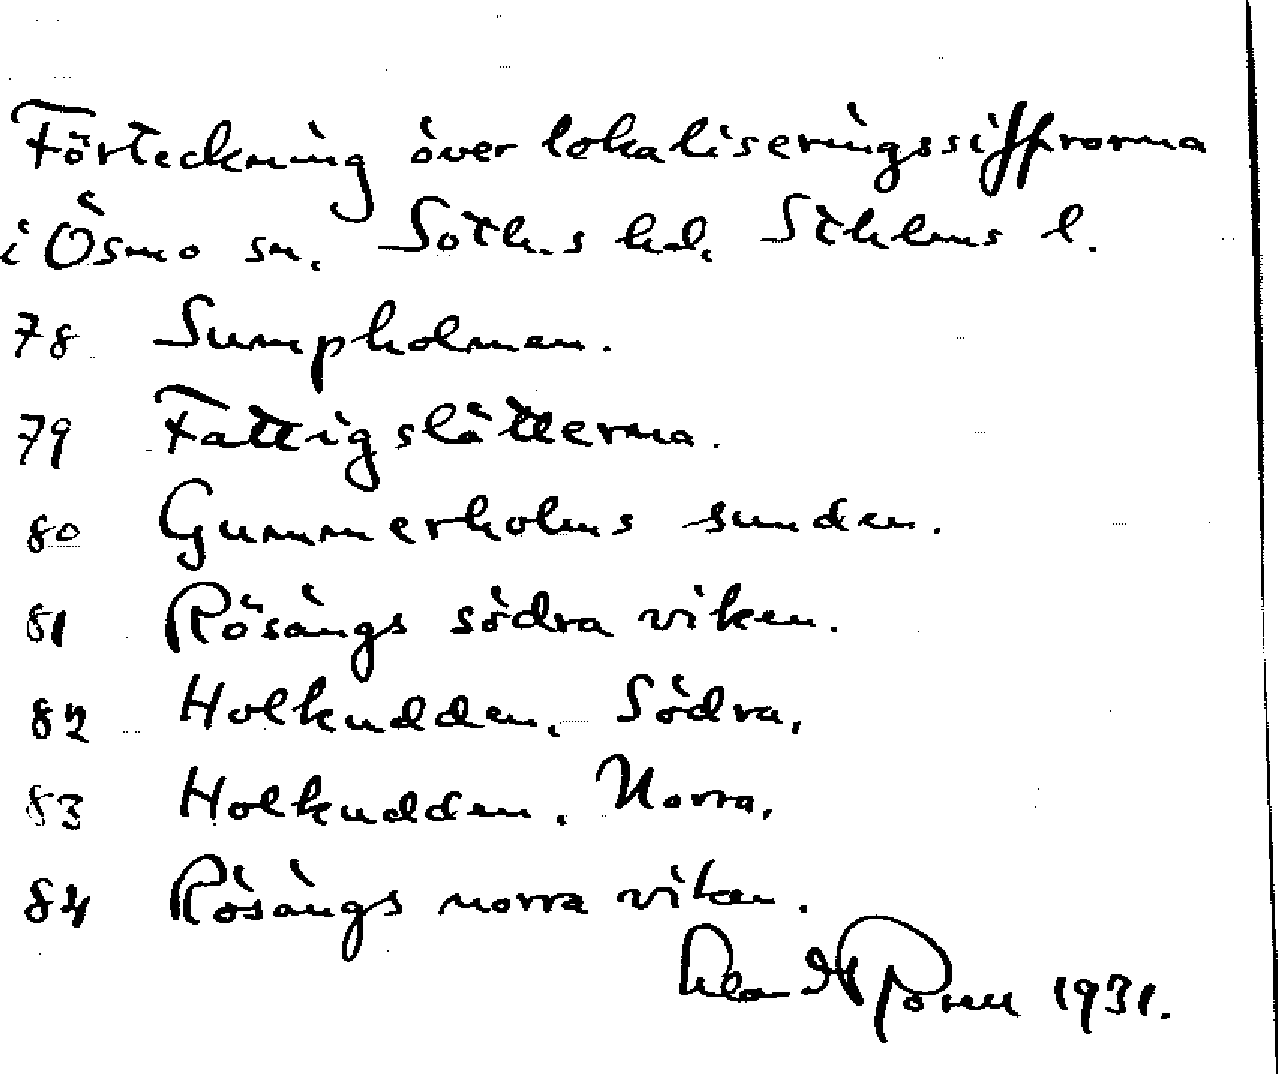 Förteckning över lokaliseringssiffrorna
i Ösmo sn. Soth.s hd. Sthlms l.
78 Sumpholmen.
79 Fattigslåtterna.
80 Gummerholms sunden.
81 Rösängs södra viken.
82 Holkudden. Södra.
83 Holkudden. Norra.
84 Rösängs norra viken.
1931.